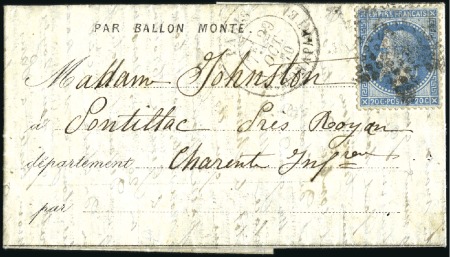 PAR BALLON MONTÉ.
EMPIRE FRANÇAIS
29
OCT
70
20 C POSTES 20 C
Madam Johnston
à Pontillac Près Royan
département Charente Infre
par